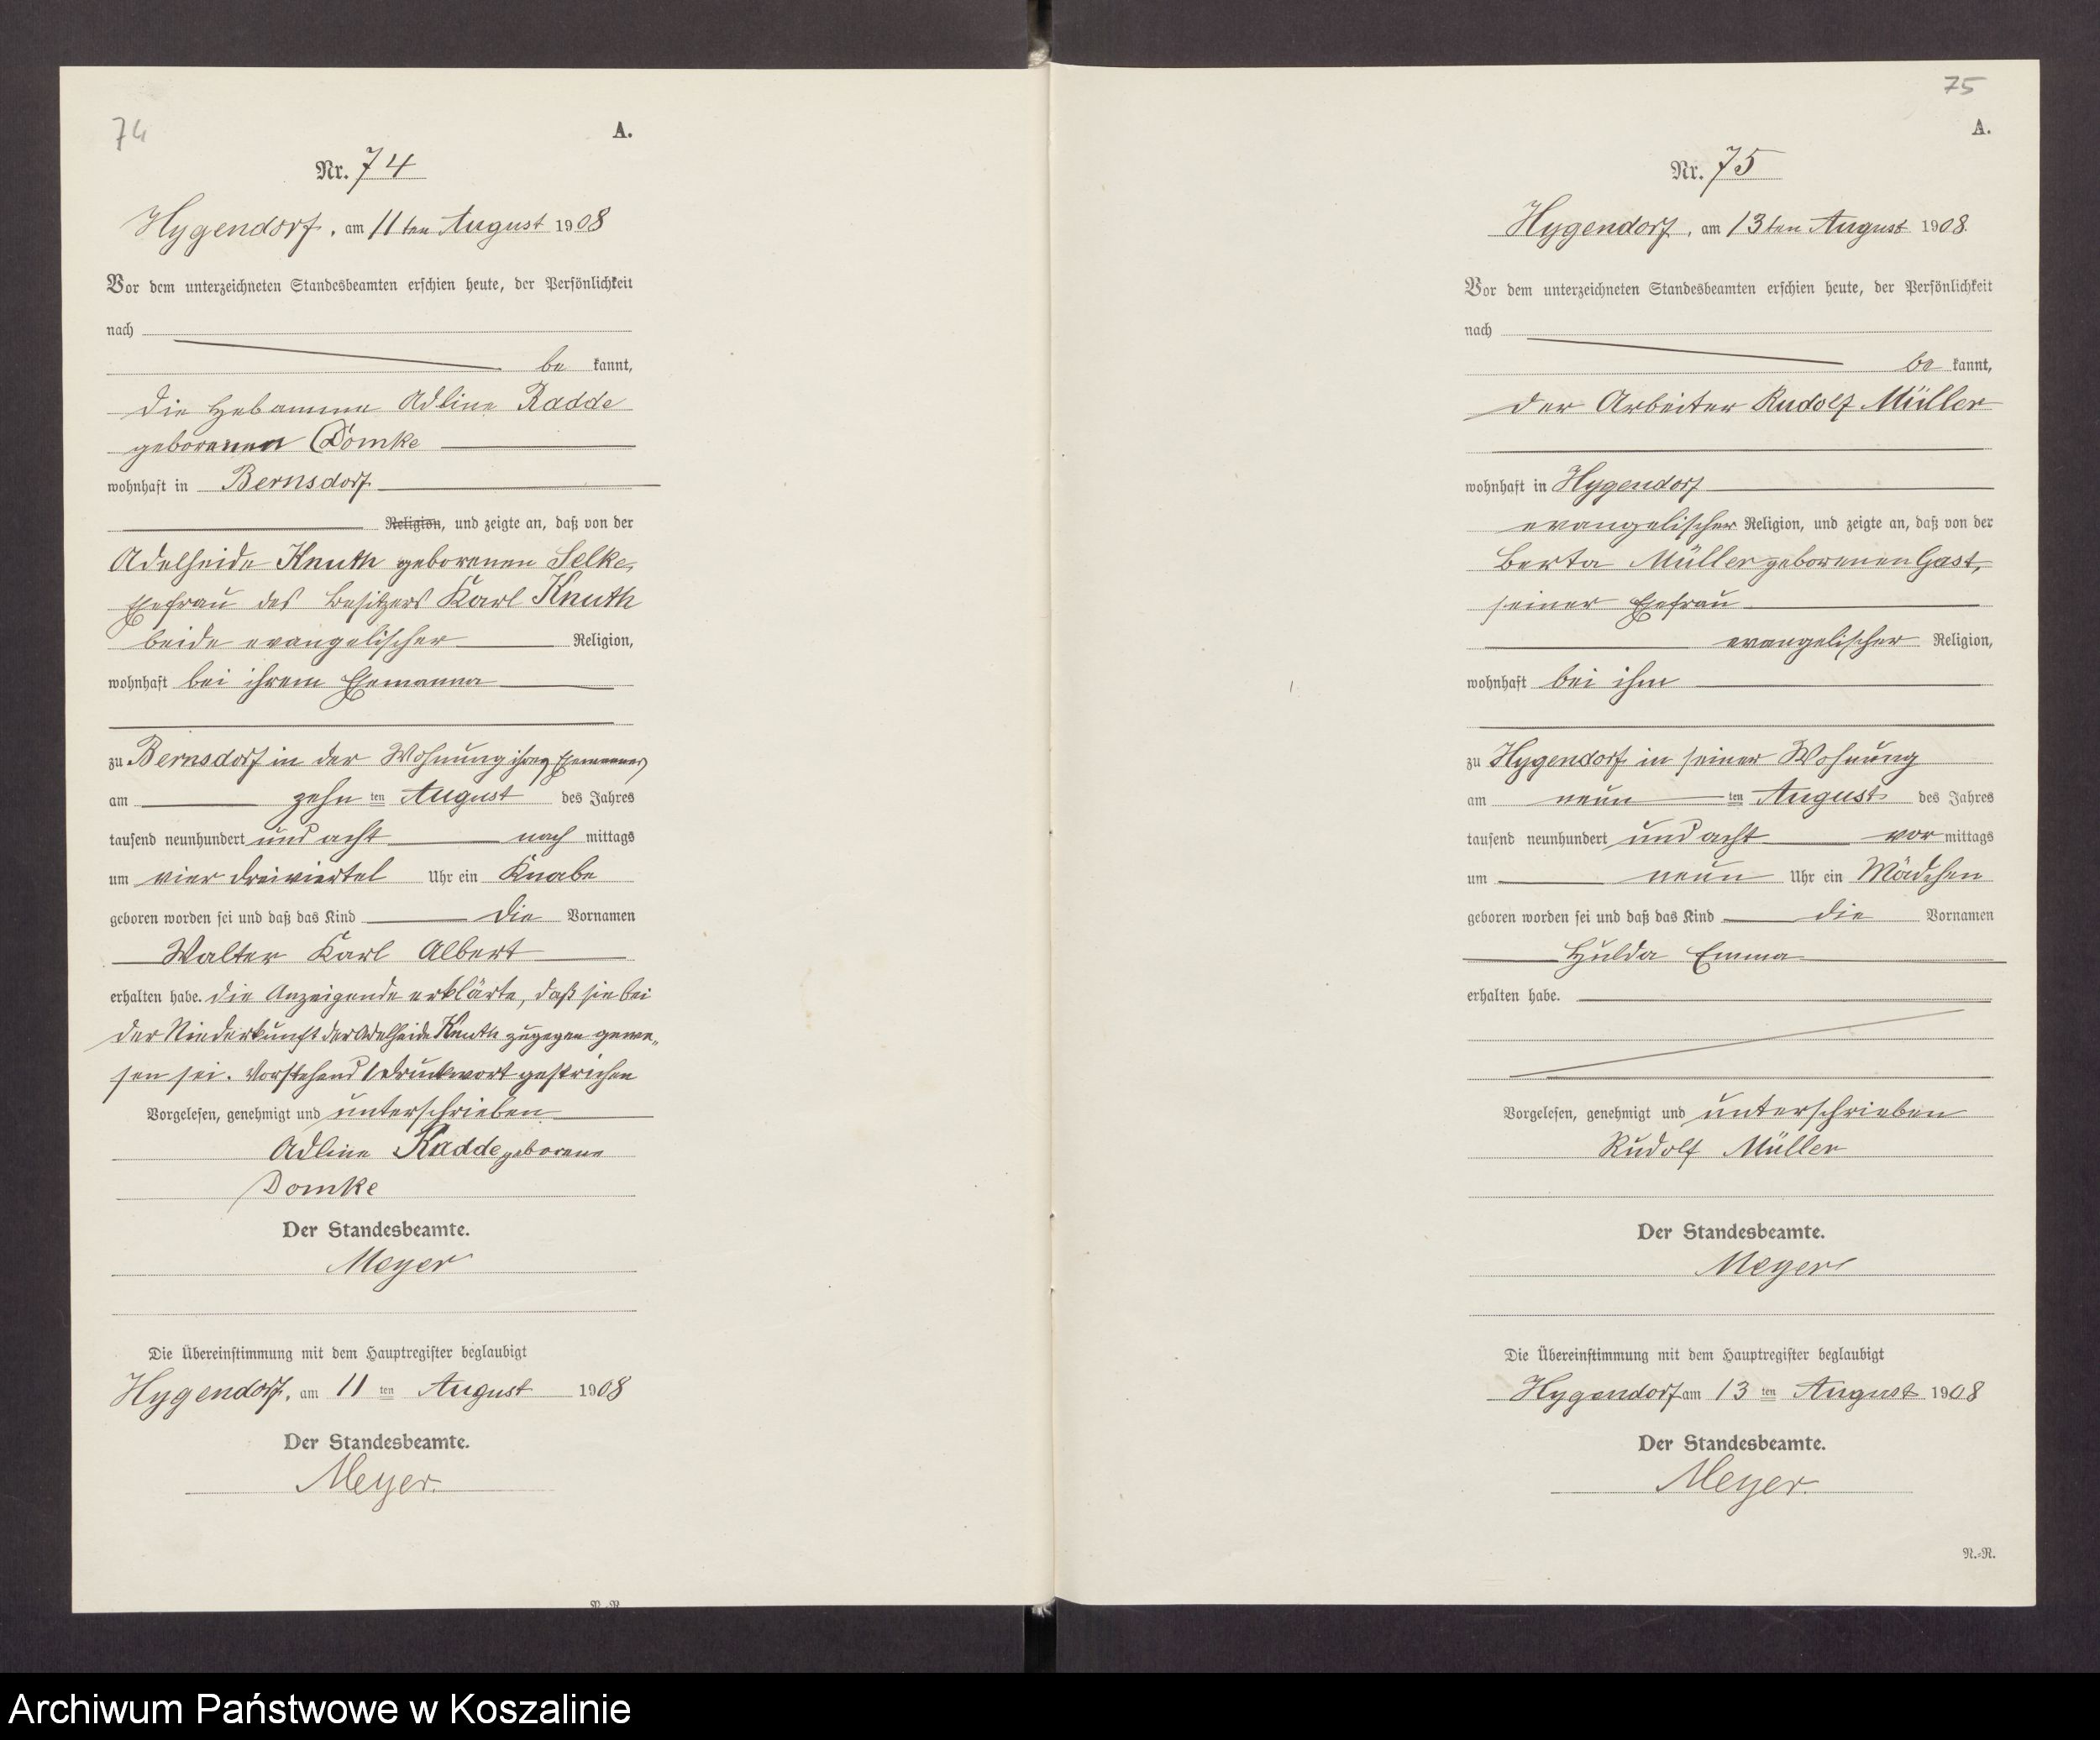 74
A.
Nr. 74
Hygendorf, am 11ten August 1908
Vor dem unterzeichneten Standesbeamten erschien heute, der Persönlichkeit
nach
be kannt,
die Hebamme Adline Radde
geborenen Domke
wohnhaft in Bernsdorf
Religion, und zeigte an, daß von der
Adelheide Knuth geborenen Selke,
Ehefrau des Besitzers Karl Knuth
beide evangelischer Religion,
wohnhaft bei ihrem Ehemanne
zu Bernsdorf in der Wohnung ihres Ehemannes
am zehn ten August des Jahres
tausend neunhundert und acht nach mittags
um vier dreiviertel Uhr ein Knabe
geboren worden sei und daß das Kind die Vornamen
Walter Karl Albert
erhalten habe. Die Anzeigende erklärte, daß sie bei
der Niederkunft der Adelheide Knuth zugegen gewe„
sen sei. Vorstehend 1 Druckwort gestrichen
Vorgelesen, genehmigt und unterschrieben
Adline Radde geborene
Domke
Der Standesbeamte.
Meyer
Die Übereinstimmung mit dem Hauptregister beglaubigt
Hygendorf, am 11 ten August 1908
Der Standesbeamte.
Meyer.
75
A.
Nr. 75
Hygendorf, am 13ten August 1908.
Vor dem unterzeichneten Standesbeamten erschien heute, der Persönlichkeit
nach
be kannt,
der Arbeiter Rudolf Müller
wohnhaft in Hygendorf
evangelischer Religion, und zeigte an, daß von der
Berta Müller geborenen Gast,
seiner Ehefrau
evangelischer Religion,
wohnhaft bei ihm
zu Hygendorf in seiner Wohnung
am neun ten August des Jahres
tausend neunhundert und acht vor mittags
um neun Uhr ein Mädchen
geboren worden sei und daß das Kind die Vornamen
Hulda Emma
erhalten habe.
Vorgelesen, genehmigt und unterschrieben
Rudolf Müller
Der Standesbeamte.
Meyer
Die Übereinstimmung mit dem Hauptregister beglaubigt
Hygendorf am 13 ten August 1908
Der Standesbeamte.
Meyer.
N.-R.
Archiwum Państwowe w Koszalinie